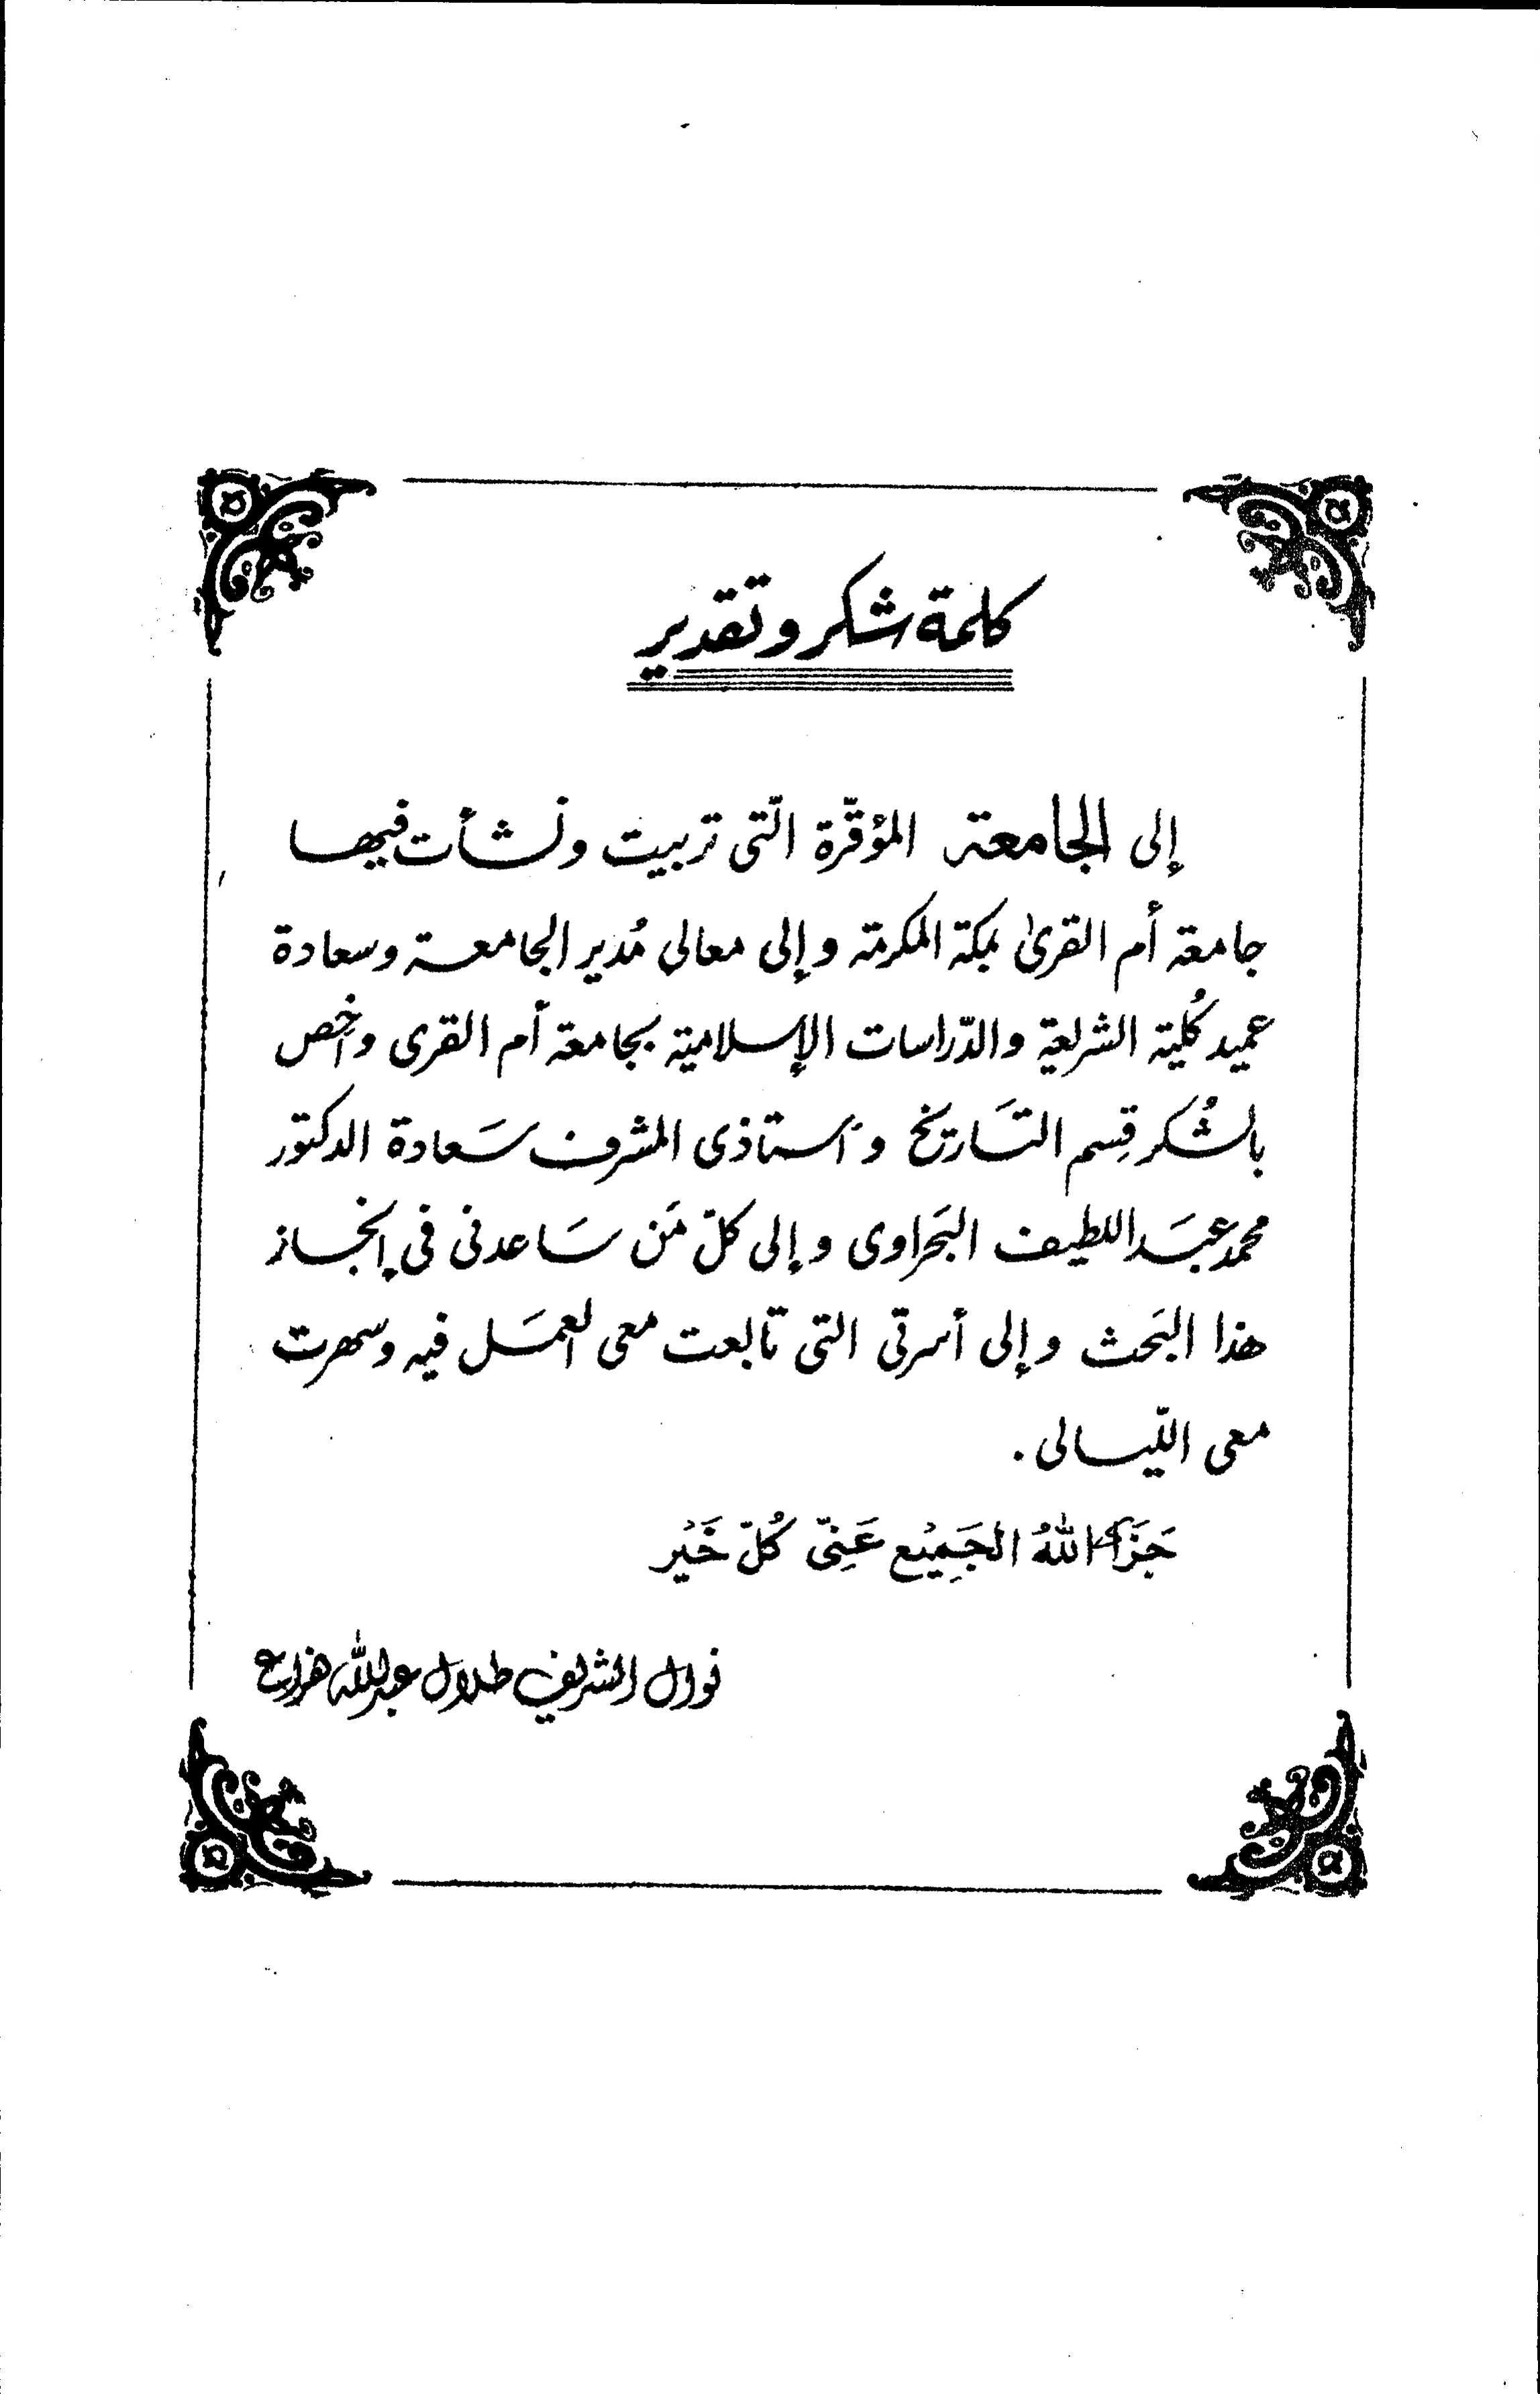 كلمة شكر وتقدير
إلى الجامعة المؤقّرة الّتى تربيت ونشأت فيها
جامعة أم القرىٰ بمكة المكرمة وإلى معالي مُدير الجامعة وسعادة
عميد كُلية الشريعة والدّراسات الإسلامية بجامعة أم القرى وأخُص
بالشُكر قِسم التَاريخ وأستاذى المشرف سَعادة الدكتور
محمد عبَد اللطيف البَحراوى وإلى كلّ مَن سَاعدنى فى إنجاز
هذا البَحث وإلى أسرتى التى تابعت معى العمَل فيه وسهرت
معى اللّيالى .
جَزَاكَ اللهُ الجَمِيْع عَنِىّ كُلّ خَيْر
نوال الشريف طلال عبدالله